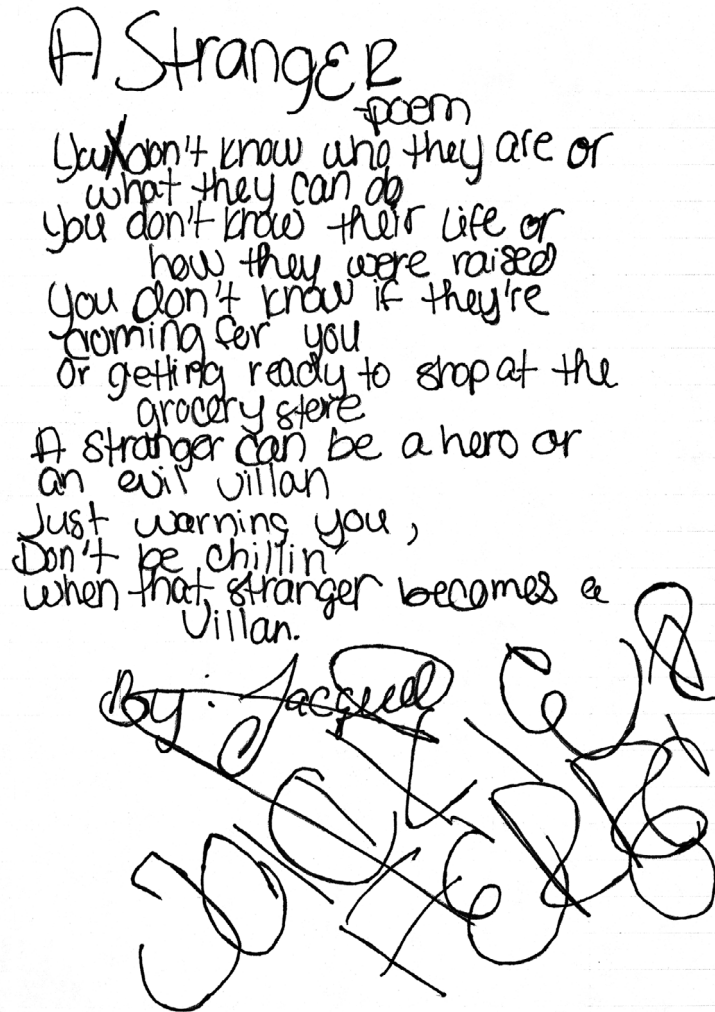 A StrangER
-poem
You don't know who they are or
what they can do
you don't know their life or
how they were raised
you don't know if they're
coming for you
or getting ready to shop at the
grocery store
A stranger can be a hero or
an evil villan
Just warning you,
Don't be chillin'
when that stranger becomes a
Villan.
By: Jacquel